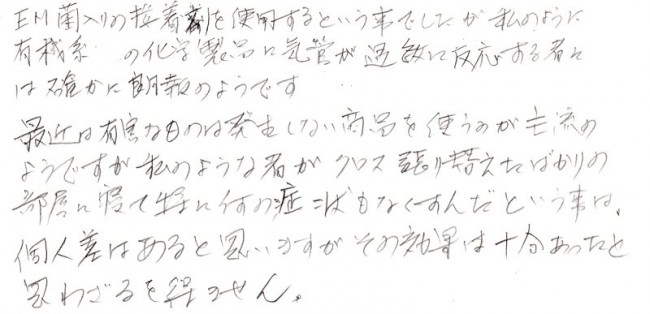 EM菌入りの接着剤を使用するという事でしたが私のように
有機系 の化学製品に気管が過敏に反応する者に
は確かに朗報のようです
最近は有害なものは発生しない商品を使うのが主流の
ようですが私のような者がクロス張り替えたばかりの
部屋に寝て特に何の症状もなくすんだという事は、
個人差はあると思いますがその効果は十分あったと
思わざるを得ません。